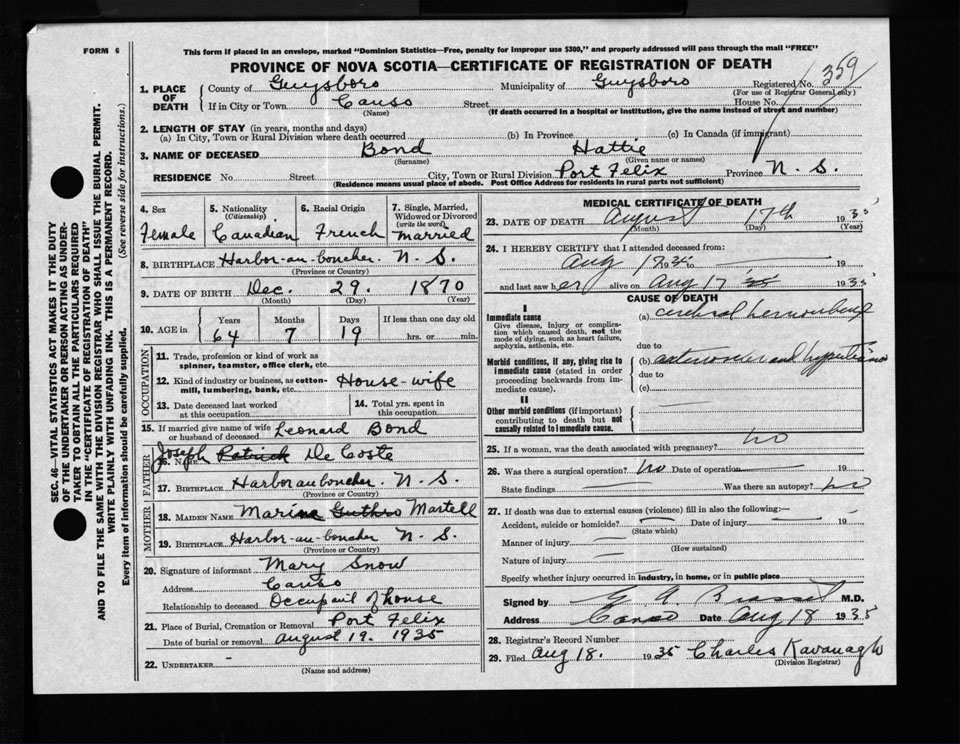 FORM 6
This form if placed in an envelope, marked "Dominion Statistics—Free, penalty for improper use $300," and properly addressed will pass through the mail "FREE"
PROVINCE OF NOVA SCOTIA—CERTIFICATE OF REGISTRATION OF DEATH
SEC. 46—VITAL STATISTICS ACT MAKES IT THE DUTY
OF THE UNDERTAKER OR PERSON ACTING AS UNDER-
TAKER TO OBTAIN ALL THE PARTICULARS REQUIRED
IN THE "CERTIFICATE OF REGISTRATION OF DEATH"
AND TO FILE THE SAME WITH THE DIVISION REGISTRAR WHO SHALL ISSUE THE BURIAL PERMIT.
WRITE PLAINLY WITH UNFADING INK. THIS IS A PERMANENT RECORD.
Every item of information should be carefully supplied. (See reverse side for instructions.)
1. PLACE OF DEATH
County of Guysboro Municipality of Guysboro Registered No. 359
(For use of Registrar General only)
If in City or Town Canso Street House No.
(Name) (If death occurred in a hospital or institution, give the name instead of street and number)
2. LENGTH OF STAY (in years, months and days)
(a) In City, Town or Rural Division where death occurred (b) In Province (c) In Canada (if immigrant)
3. NAME OF DECEASED Bond Hattie
(Surname) (Given name or names)
RESIDENCE No. Street City, Town or Rural Division Port Felix Province N. S.
(Residence means usual place of abode. Post Office Address for residents in rural parts not sufficient)
4. Sex Female
5. Nationality (Citizenship) Canadian
6. Racial Origin French
7. Single, Married, Widowed or Divorced (write the word) married
8. BIRTHPLACE Harbor-au-boucher. N. S.
(Province or Country)
9. DATE OF BIRTH Dec. 29. 1870
(Month) (Day) (Year)
10. AGE in Years Months Days If less than one day old
64 7 19 hrs. or min.
OCCUPATION
11. Trade, profession or kind of work as spinner, teamster, office clerk, etc.
12. Kind of industry or business, as cotton-mill, lumbering, bank, etc. House-wife
13. Date deceased last worked at this occupation
14. Total yrs. spent in this occupation
15. If married give name of wife or husband of deceased Leonard Bond
FATHER
16. NAME Joseph Patrick De Coste
17. BIRTHPLACE Harbor au boucher. N. S.
(Province or Country)
MOTHER
18. MAIDEN NAME Martell
19. BIRTHPLACE Harbor-au-boucher N. S.
(Province or Country)
20. Signature of informant Mary Snow
Address Canso
Relationship to deceased Occupant of house
21. Place of Burial, Cremation or Removal Port Felix
Date of burial or removal august 19. 1935
22. UNDERTAKER
(Name and address)
MEDICAL CERTIFICATE OF DEATH
23. DATE OF DEATH August 17th 1935
(Month) (Day) (Year)
24. I HEREBY CERTIFY that I attended deceased from:
Aug 17 1935 to 19
and last saw her alive on Aug 17 1935
CAUSE OF DEATH
I
Immediate cause
Give disease, injury or complication which caused death, not the mode of dying, such as heart failure, asphyxia, asthenia, etc.
(a) cerebral hemorrhage
due to
Morbid conditions, if any, giving rise to immediate cause (stated in order proceeding backwards from immediate cause).
(b) and hypertension
due to
(c)
II
Other morbid conditions (if important) contributing to death but not causally related to immediate cause.
25. If a woman, was the death associated with pregnancy? no
26. Was there a surgical operation? no Date of operation 19
State findings Was there an autopsy? no
27. If death was due to external causes (violence) fill in also the following:—
Accident, suicide or homicide? Date of injury 19
(State which)
Manner of injury
(How sustained)
Nature of injury
Specify whether injury occurred in industry, in home, or in public place
Signed by M.D.
Address Canso Date Aug 18 1935
28. Registrar's Record Number
29. Filed Aug 18. 1935 Charles Kavanagh
(Division Registrar)